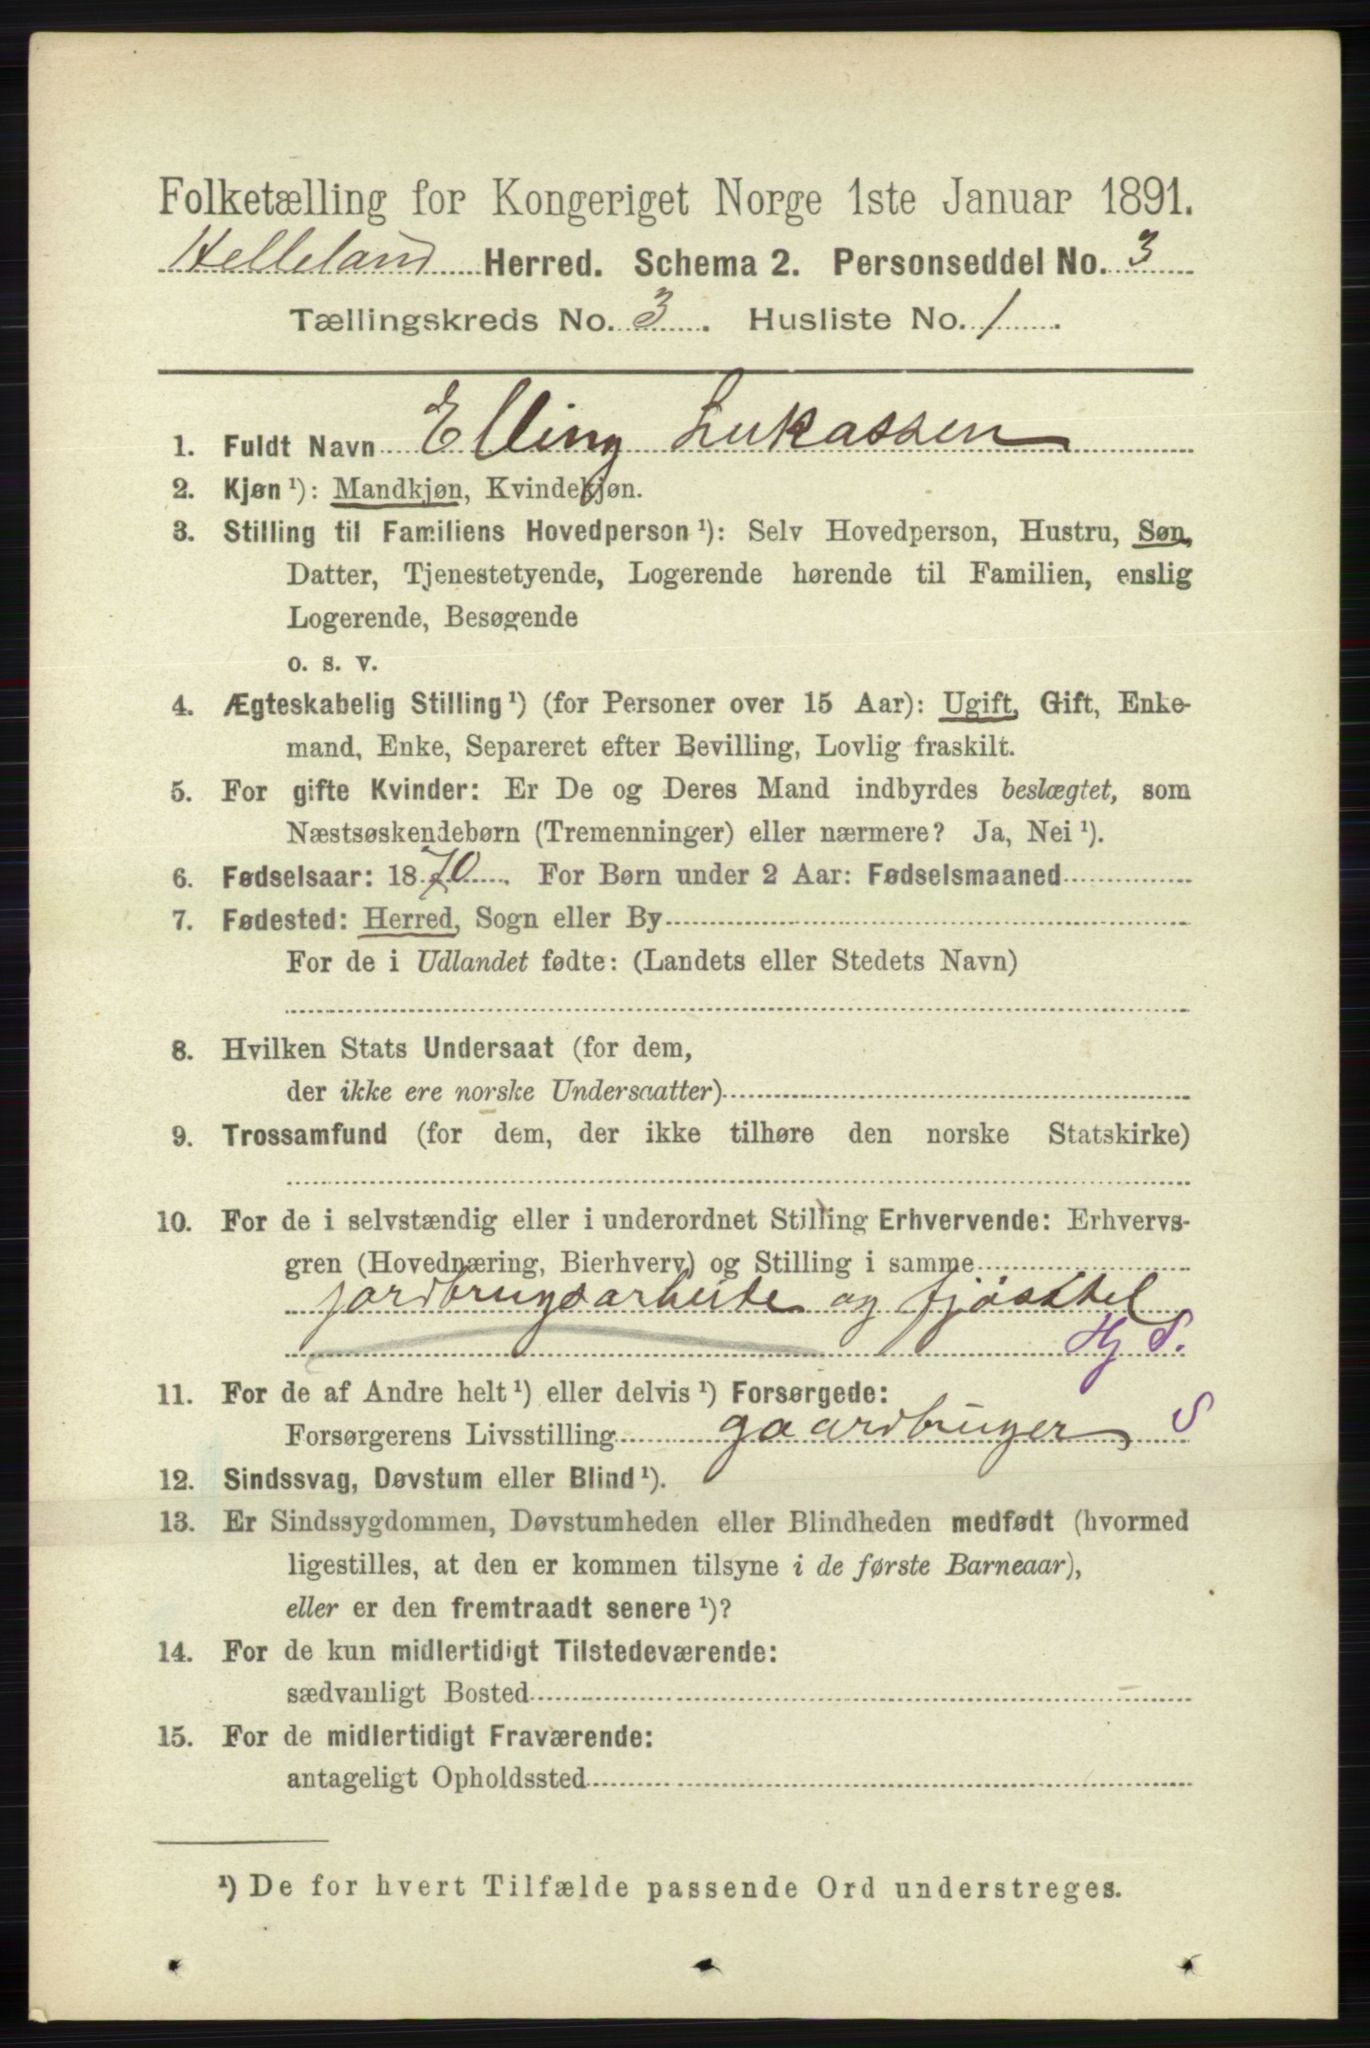 Folketælling for Kongeriget Norge 1ste Januar 1891.
Helleland Herred. Schema 2. Personseddel No. 3
Tællingskreds No. 3. Husliste No. 1.
1. Fuldt Navn Elling Lukassen
2. Kjøn¹): Mandkjøn, Kvindekjøn.
3. Stilling til Familiens Hovedperson¹): Selv Hovedperson, Hustru, Søn,
Datter, Tjenestetyende, Logerende hørende til Familien, enslig
Logerende, Besøgende
o. s. v.
4. Ægteskabelig Stilling¹) (for Personer over 15 Aar): Ugift, Gift, Enke-
mand, Enke, Separeret efter Bevilling, Lovlig fraskilt.
5. For gifte Kvinder: Er De og Deres Mand indbyrdes beslægtet, som
Næstsøskendebørn (Tremenninger) eller nærmere? Ja, Nei¹).
6. Fødselsaar: 1870. For Børn under 2 Aar: Fødselsmaaned
7. Fødested: Herred, Sogn eller By
For de i Udlandet fødte: (Landets eller Stedets Navn)
8. Hvilken Stats Undersaat (for dem,
der ikke ere norske Undersaatter)
9. Trossamfund (for dem, der ikke tilhøre den norske Statskirke)
10. For de i selvstændig eller i underordnet Stilling Erhvervende: Erhvervs-
gren (Hovednæring, Bierhverv) og Stilling i samme
jordbrugsarbeide og fjøsstel
Hj S.
11. For de af Andre helt¹) eller delvis¹) Forsørgede:
Forsørgerens Livsstilling gaardbruger, S
12. Sindssvag, Døvstum eller Blind¹).
13. Er Sindssygdommen, Døvstumheden eller Blindheden medfødt (hvormed
ligestilles, at den er kommen tilsyne i de første Barneaar),
eller er den fremtraadt senere¹)?
14. For de kun midlertidigt Tilstedeværende:
sædvanligt Bosted
15. For de midlertidigt Fraværende:
antageligt Opholdssted
¹) De for hvert Tilfælde passende Ord understreges.